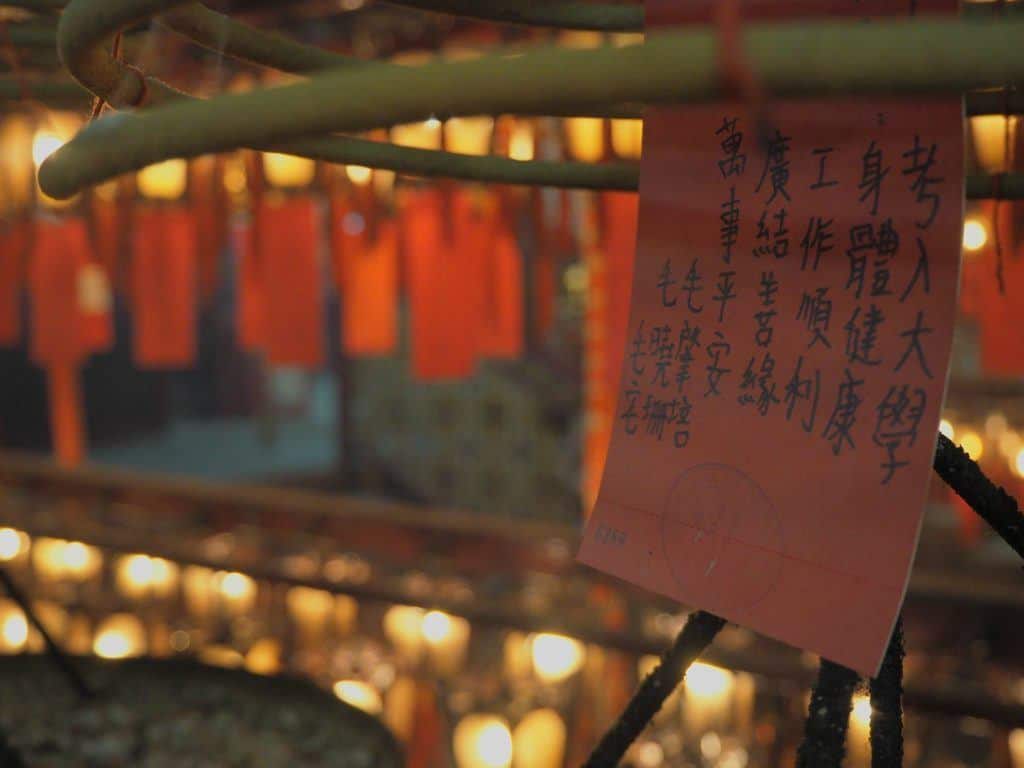 考入大學
身體健康
工作順利
廣結善緣
萬事平安
毛肇培
毛曉珊
毛宅